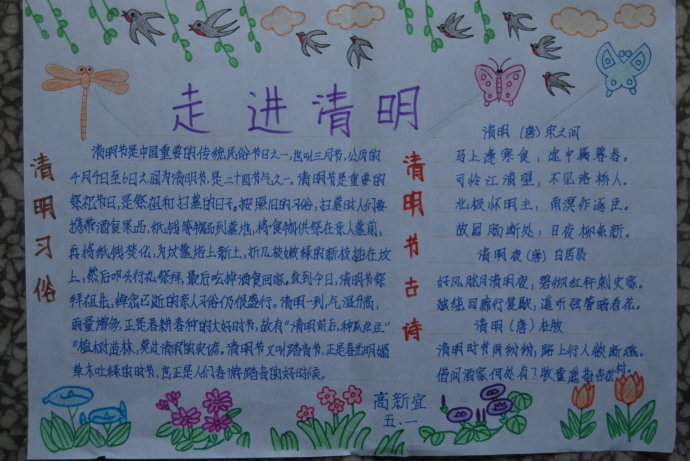 走进清明
清明习俗
清明节是中国重要的传统民俗节日之一，也叫三月节，公历的
4月4日至6日之间为清明节，是二十四节气之一。清明节是重要的
祭祀节日，是祭祖和扫墓的日子。按照旧的习俗，扫墓时人们要
携带酒食果品，纸钱等物品到墓地，将食物供祭在亲人墓前，
再将纸钱焚化，为坟墓培上新土，折几枝嫩绿的新枝插在坟
上，然后叩头行礼祭拜，最后吃掉酒食回家。直到今日，清明节祭
拜祖先，悼念已逝的亲人习俗仍很盛行。清明一到，气温升高，
雨量增多，正是春耕春种的大好时节，故有“清明前后，种瓜点豆”
“植树造林，莫过清明的农谚。清明节又叫踏青节，正是春光明媚
草木吐绿的时节，也正是人们春游踏青的好时候。
清明节古诗
清明（唐）宋之问
马上逢寒食，途中属暮春。
可怜江浦望，不见洛桥人。
北极怀明主，南溟作逐臣。
故园断处，日夜柳条新。
清明夜（唐）白居易
好风胧月清明夜，碧砌红轩刺史家。
独绕回廊行复歇，遥听弦管暗看花。
清明（唐）杜牧
清明时节雨纷纷，路上行人欲断魂。
借问酒家何处有？牧童遥指杏花村。
高新宜
五、一